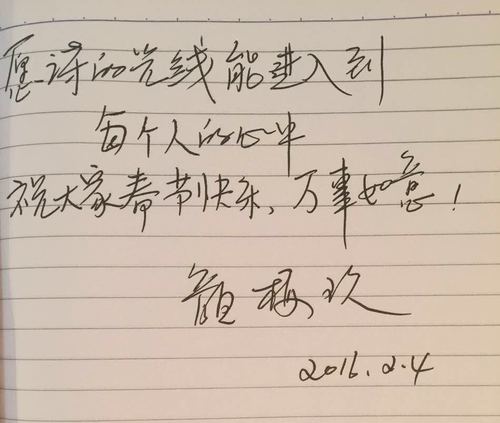 愿诗的光线能进入到
每个人的心中
祝大家春节快乐，万事如意！
颜梅玖
2016.2.4